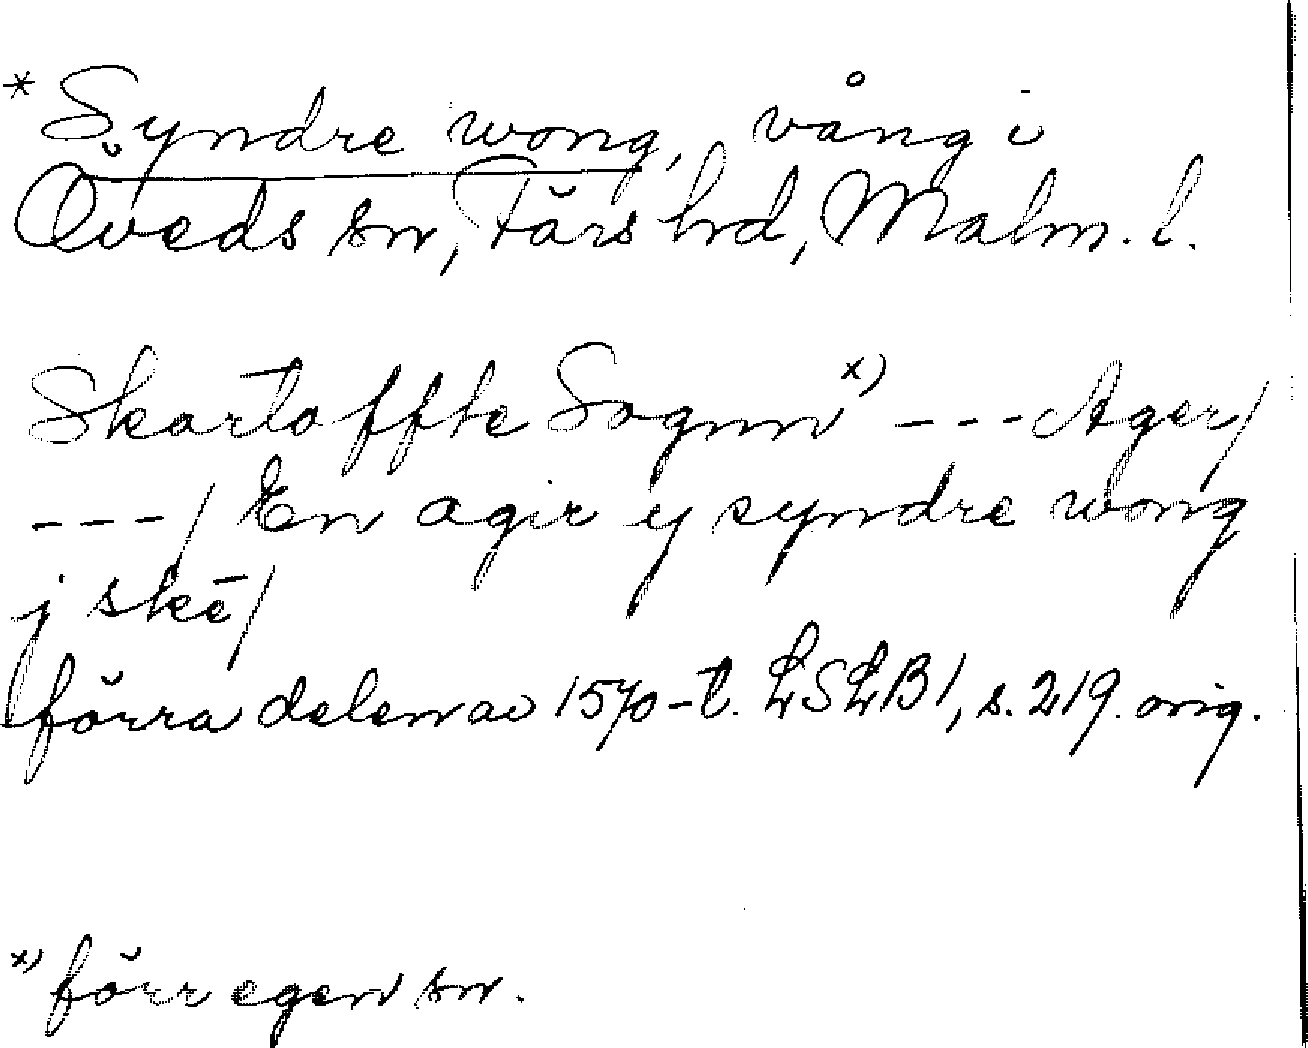 * Syndre wong, vång i
Öveds sn, Färs hd, Malm. l.
Skartoffte Sognn x) --- Ager/
---/ En agir y syndre wong
j skē/
förra delen av 1570-t. LSLB1, s. 219. orig.
x) förr egen sn.